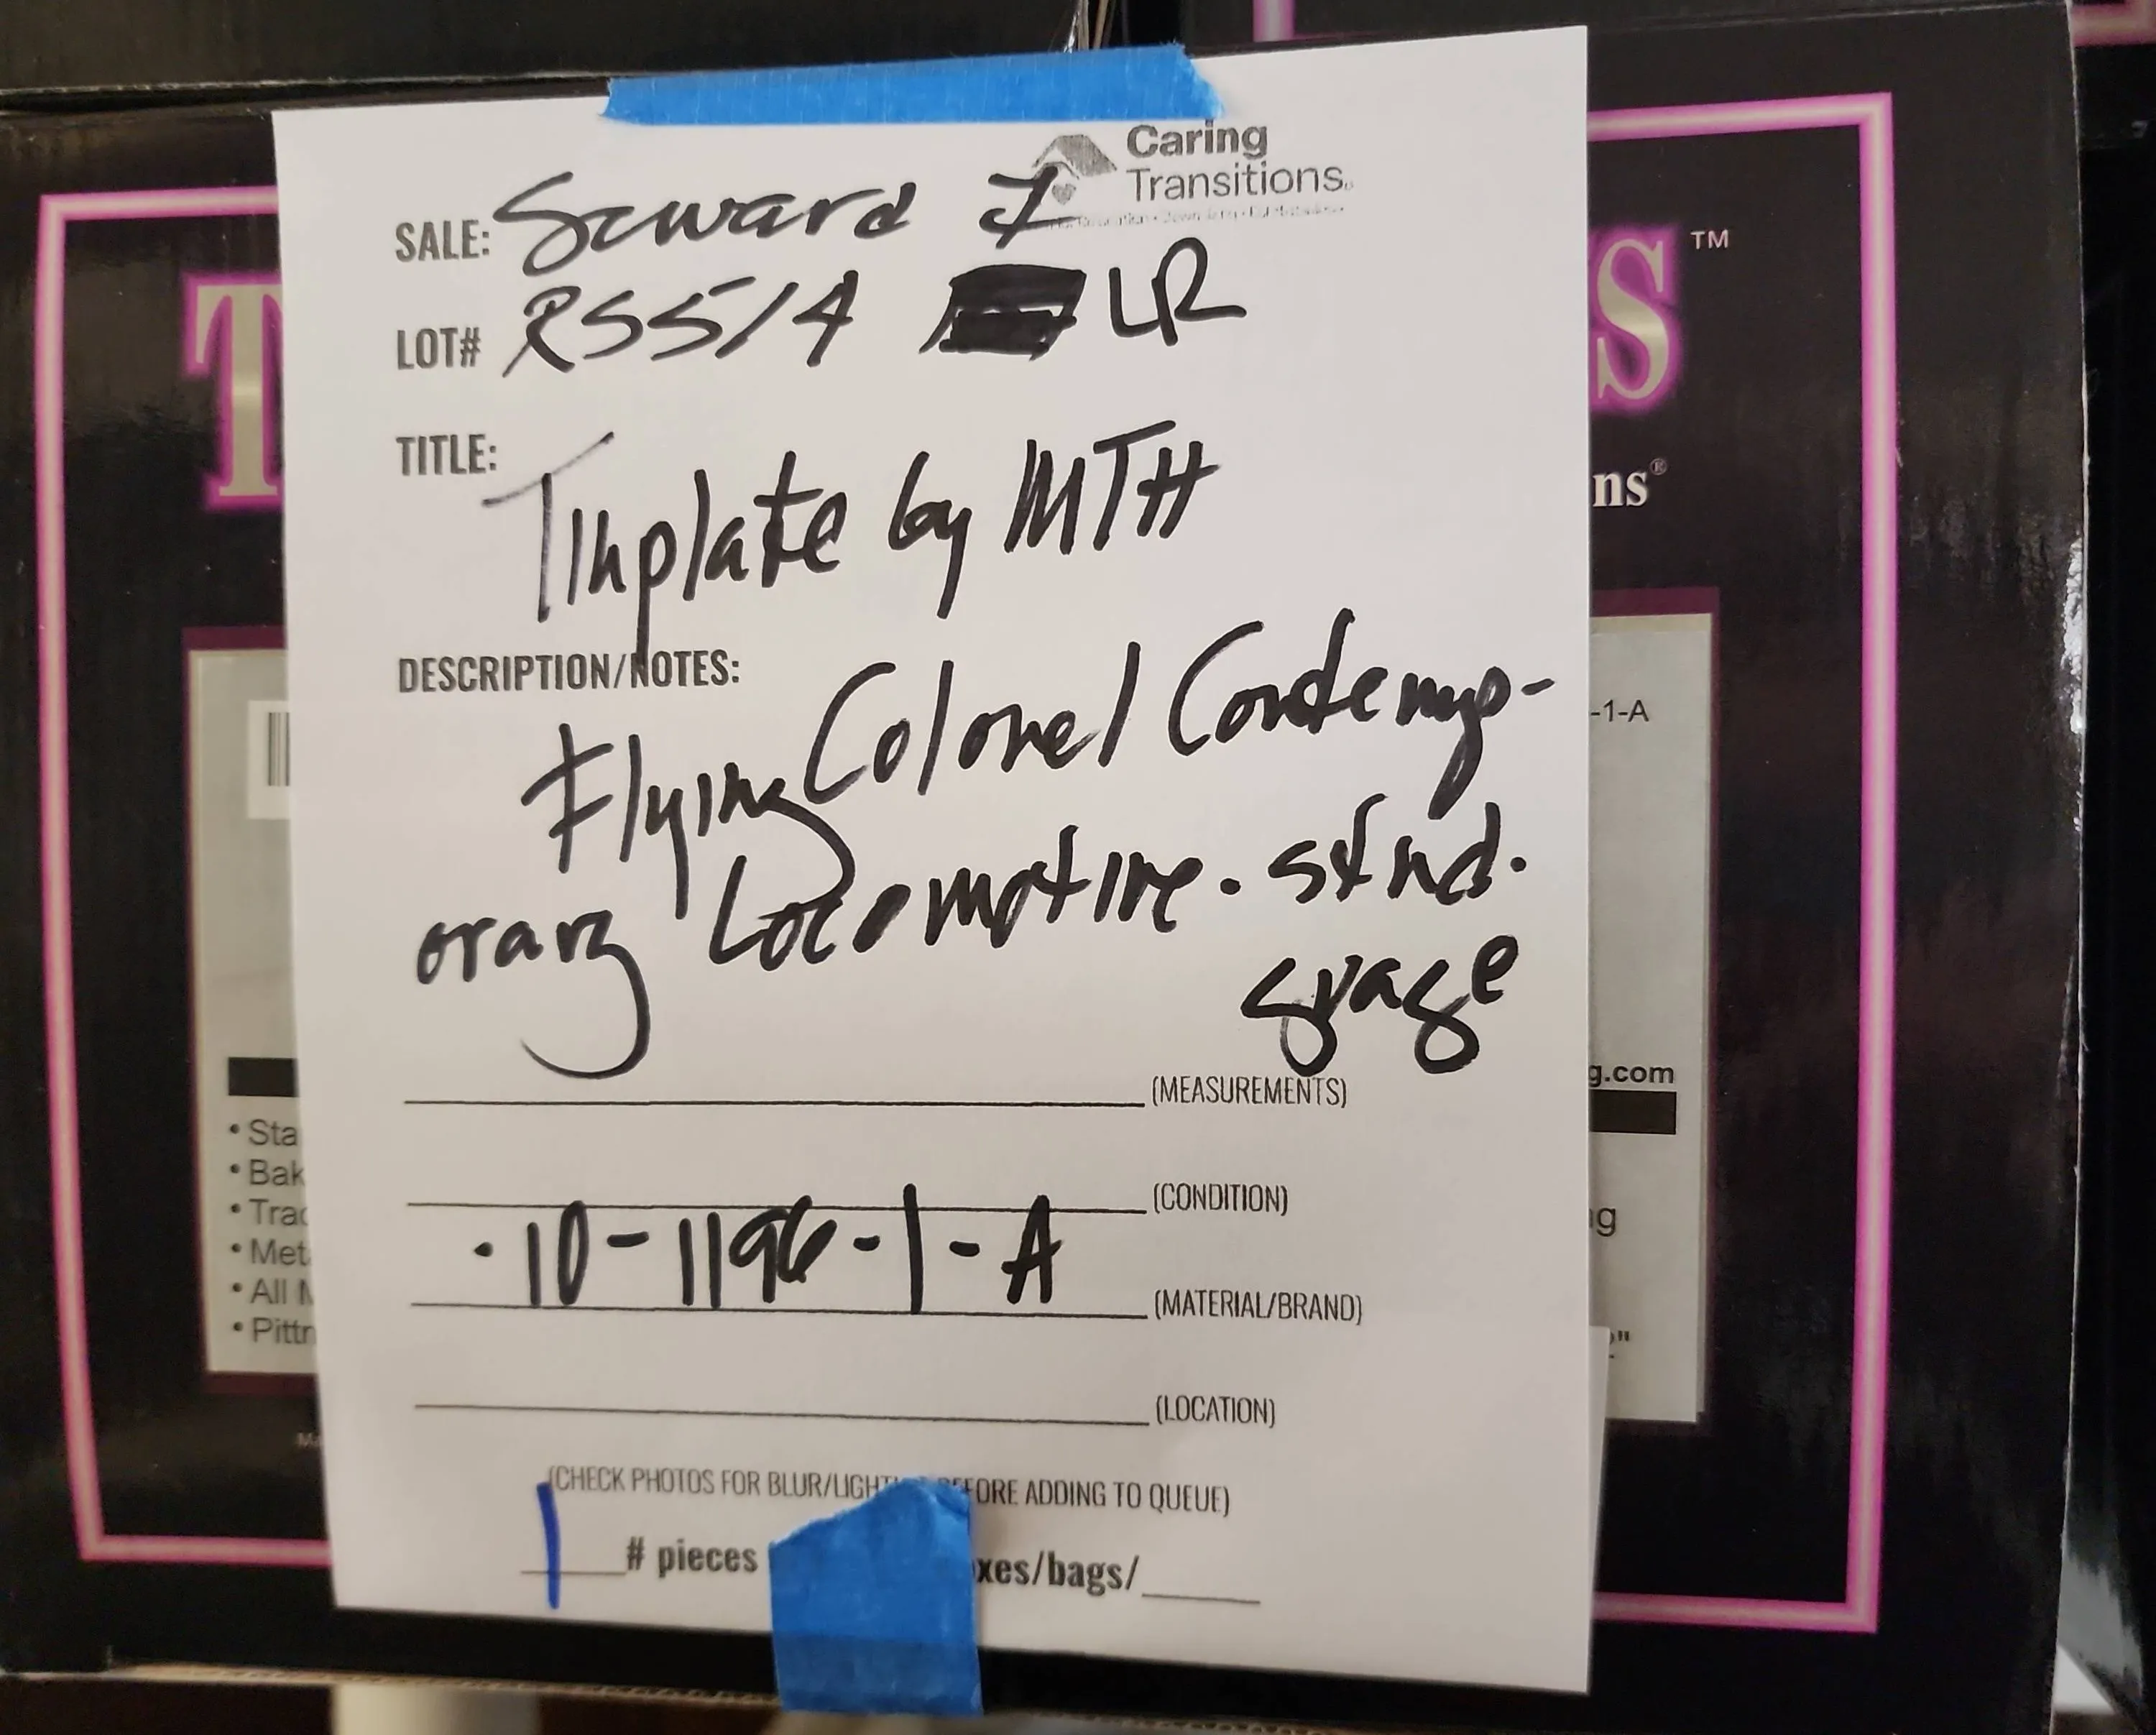 Caring
Transitions
SALE: Seward I
LOT# RS514 LR
TITLE:
Tinplate by MTH
DESCRIPTION/NOTES:
Flying Colonel Contemp-
orary Locomotive. stnd.
guage
(MEASUREMENTS)
(CONDITION)
10-1196-1-A
(MATERIAL/BRAND)
(LOCATION)
(CHECK PHOTOS FOR BLUR/LIGHT BEFORE ADDING TO QUEUE)
1 # pieces xes/bags/
T S™
ns®
-1-A
g.com
• Sta
• Bak
• Trac
• Met
• All M
• Pittr
g